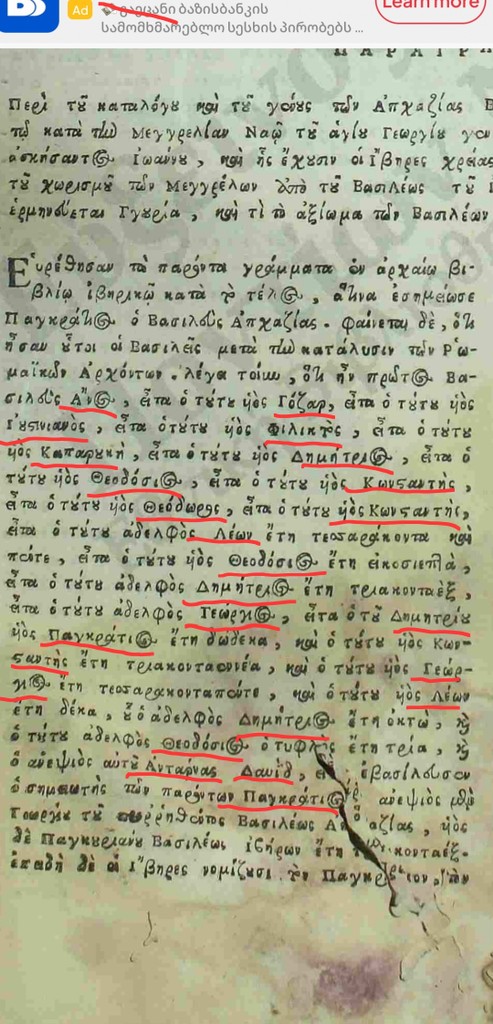 Ad გაეცანი ბაზისბანკის
სამომხმარებლო სესხის პირობებს ...
Learn more
Περὶ τȣ͂ καταλόγȣ καὶ τȣ͂ γένȣς τῶν Ἀπχαζίας
τῷ κατὰ τὴν Μεγγρελίαν Ναῷ τȣ͂ ἁγίȣ Γεωργίȣ
ἀσκήσαντος Ἰωάννȣ, καὶ ἧς ἔχȣσιν οἱ Ἴβηρες χρείας
τȣ͂ χωρισμȣ͂ τῶν Μεγγρέλων ὑπὸ τȣ͂ Βασιλέως τȣ͂
ἑρμηνεύεται Γȣρία, καὶ τί τὸ ἀξίωμα τῶν Βασιλέων
Εὑρέθησαν τὰ παρόντα γράμματα ἐν ἀρχαίῳ βι-
βλίῳ ἰβηρικῷ κατὰ τὸ τέλος, ἅτινα ἐσημείωσε
Παγκράτιος ὁ Βασιλεὺς Ἀπχαζίας. φαίνεται δὲ, ὅτι
ἦσαν ȣ͗͂τοι οἱ Βασιλεῖς μετὰ τὴν κατάλυσιν τῶν Ῥω-
μαϊκῶν Ἀρχόντων. λέγει τοίνυν, ὅτι ἦν πρῶτος Βα-
σιλεὺς Ἄνος, εἶτα ὁ τȣ́τȣ υἱὸς Γόζαρ, εἶτα ὁ τȣ́τȣ υἱὸς
Ἰȣστινιανὸς, εἶτα ὁ τȣ́τȣ υἱὸς Φιλικτὸς, εἶτα ὁ τȣ́τȣ
υἱὸς Καπαρȣκὴ, εἶτα ὁ τȣ́τȣ υἱὸς Δημήτριος, εἶτα ὁ
τȣ́τȣ υἱὸς Θεοδόσιος, εἶτα ὁ τȣ́τȣ υἱὸς Κωνσταντὴς,
εἶτα ὁ τȣ́τȣ υἱὸς Θεόδωρος, εἶτα ὁ τȣ́τȣ υἱὸς Κωνσταντὴς,
εἶτα ὁ τȣ́τȣ ἀδελφὸς Λέων ἔτη τεσσαράκοντα καὶ
πέντε, εἶτα ὁ τȣ́τȣ υἱὸς Θεοδόσιος ἔτη εἰκοσιεπτὰ,
εἶτα ὁ τȣ́τȣ ἀδελφὸς Δημήτριος ἔτη τριακονταὲξ,
εἶτα ὁ τȣ́τȣ ἀδελφὸς Γεώργιος, εἶτα ὁ τȣ͂ Δημητρίȣ
υἱὸς Παγκράτιος ἔτη δώδεκα, καὶ ὁ τȣ́τȣ υἱὸς Κων-
σταντὴς ἔτη τριακονταεννέα, καὶ ὁ τȣ́τȣ υἱὸς Γεώρ-
γιος ἔτη τεσσαρακονταπέντε, καὶ ὁ τȣ́τȣ υἱὸς Λέων
ἔτη δέκα, καὶ ὁ ἀδελφὸς Δημήτριος ἔτη ὀκτὼ, καὶ
ὁ τȣ́τȣ ἀδελφὸς Θεοδόσιος ὁ τυφλὸς ἔτη τρία, καὶ
ὁ ἀνεψιὸς αὐτȣ͂ Ἀνταρνας Δαυὶδ, ἐβασίλευσεν
ὁ σημειωτὴς τῶν παρόντων Παγκράτιος ὁ ἀνεψιὸς μὲν
Γεωργίȣ τȣ͂ προῤῥηθέντος Βασιλέως Ἀπχαζίας, υἱὸς
δὲ Παγκȣρίανȣ Βασιλέως Ἰβήρων ἔτη τριακονταέξ.
ἐπειδὴ δὲ οἱ Ἴβηρες νομίζȣσι τὸν Παγκράτιον, τὸν